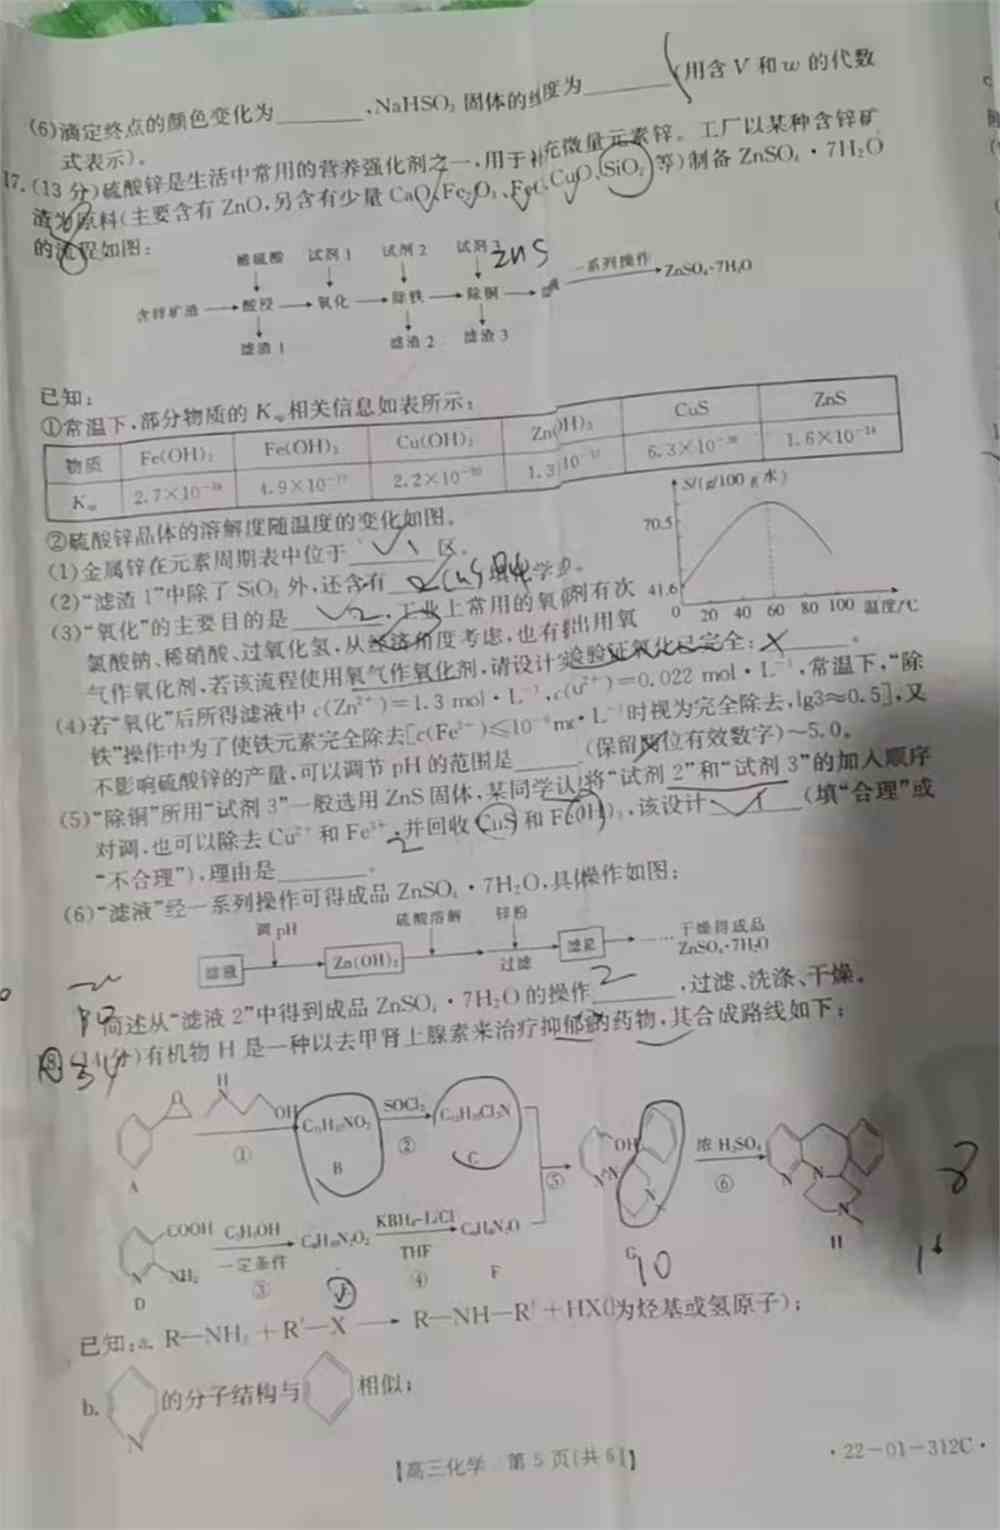 (6)滴定终点的颜色变化为________,NaHSO₃固体的纯度为________(用含V和w的代数
式表示)。
17.(13分)硫酸锌是生活中常用的营养强化剂之一,用于补充微量元素锌。工厂以某种含锌矿
渣为原料(主要含有ZnO,另含有少量CaO、Fe₂O₃、FeO、CuO、SiO₂等)制备ZnSO₄·7H₂O
的流程如图:
稀硫酸 试剂1 试剂2 试剂3 ZnS
含锌矿渣 酸浸 氧化 除铁 除铜 滤液 一系列操作 ZnSO₄·7H₂O
滤渣1 滤渣2 滤渣3
已知:
①常温下,部分物质的Ksp相关信息如表所示:
物质 Fe(OH)₃ Fe(OH)₂ Cu(OH)₂ Zn(OH)₂ CuS ZnS
Ksp 4.9×10⁻¹⁷ 2.2×10⁻²⁰ 1.3 10⁻¹⁷ 1.6×10⁻²⁴
②硫酸锌晶体的溶解度随温度的变化如图。
S/(g/100 g水)
70.5
41.6
0 20 40 60 80 100 温度/℃
(1)金属锌在元素周期表中位于________区。
(2)“滤渣1”中除了SiO₂外,还含有________
(3)“氧化”的主要目的是________,工业上常用的氧化剂有次
氯酸钠、稀硝酸、过氧化氢,从经济角度考虑,也有提出用氧
气作氧化剂,若该流程使用氧气作氧化剂,请设计实验验证氧化已完全:________。
(4)若“氧化”后所得滤液中c(Zn²⁺)=1.3 mol·L⁻¹,c(Cu²⁺)=0.022 mol·L⁻¹,常温下,“除
铁”操作中为了使铁元素完全除去[c(Fe³⁺)≤10⁻⁶ mol·L⁻¹时视为完全除去,lg3≈0.5],又
不影响硫酸锌的产量,可以调节pH的范围是________(保留两位有效数字)~5.0。
(5)“除铜”所用“试剂3”一般选用ZnS固体,某同学认为将“试剂2”和“试剂3”的加入顺序
对调,也可以除去Cu²⁺和Fe³⁺,并回收CuS和Fe(OH)₃,该设计________(填“合理”或
“不合理”),理由是________。
(6)“滤液”经一系列操作可得成品ZnSO₄·7H₂O,具体操作如图:
调pH 硫酸溶解 锌粉
滤液 Zn(OH)₂ 过滤 滤液 …… 干燥得成品
ZnSO₄·7H₂O
简述从“滤液2”中得到成品ZnSO₄·7H₂O的操作________,过滤、洗涤、干燥。
18.(14分)有机物H是一种以去甲肾上腺素来治疗抑郁的药物,其合成路线如下:
H
N OH SOCl₂ OH 浓H₂SO₄
① B ② C ⑤ N ⑥ N
A
COOH C₂H₅OH KBH₄-LiCl
N NH₂ 一定条件 THF
D ③ ④ F G H
已知:a. R—NH₂+R'—X ⟶ R—NH—R'+HX 为烃基或氢原子);
b. N 的分子结构与 相似;
【高三化学 第5页(共6)】
·22-01-312C·